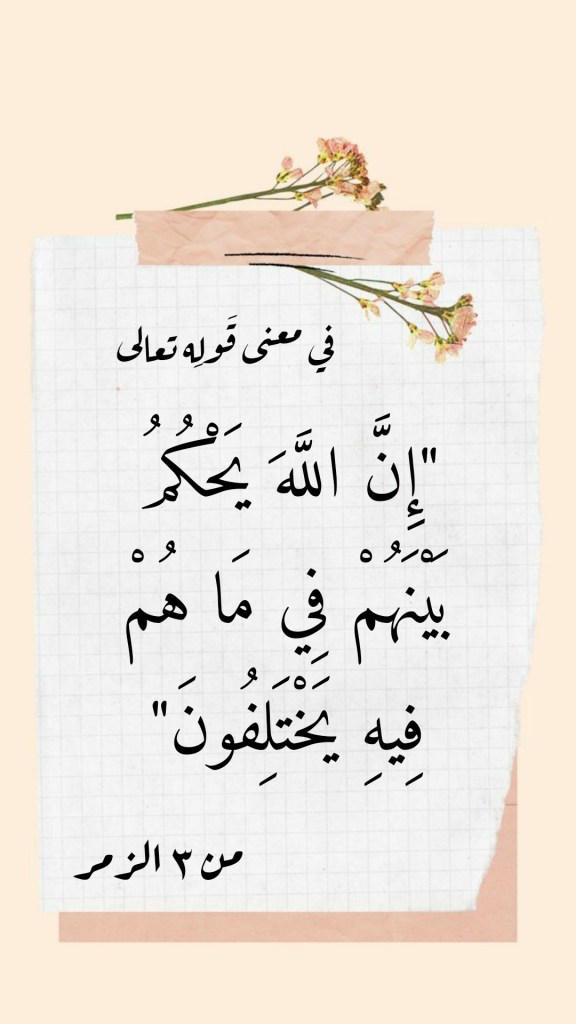 في معنى قَولِه تعالى
"إِنَّ اللَّهَ يَحْكُمُ
بَيْنَهُمْ فِي مَا هُمْ
فِيهِ يَخْتَلِفُونَ"
من ٣ الزمر